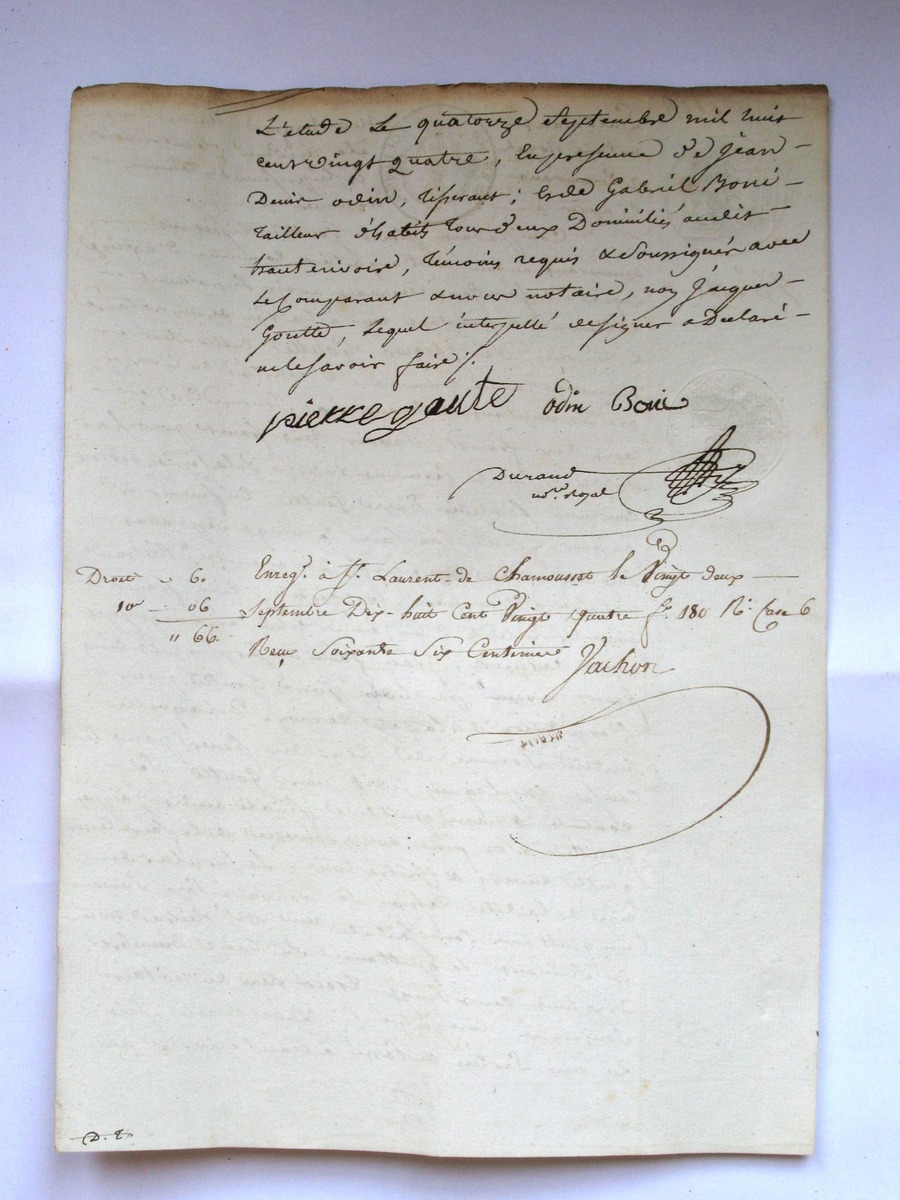 L'étude le quatorze septembre mil huit
cent vingt quatre, En présence de jean
Denis odin, tisserant; & de Gabriël Boni
tailleur d'habits tous deux Domiciliés audit
haut rivoire, témoins requis & soussignés avec
le Comparant & nous notaire, non Jacques
Goutte, lequel interpellé de signer a Déclaré
ne le savoir faire ./.
pierre goutte odin Boni
Durand
no.re Royal
Enreg.t à St. Laurent-de Chamousset le Vingt deux
Droit " 60
Septembre Dix-huit Cent Vingt quatre f.o 180 R.o Case 6
10e " 06
" 66
Reçu Soixante Six Centimes
Vachon
D. T.